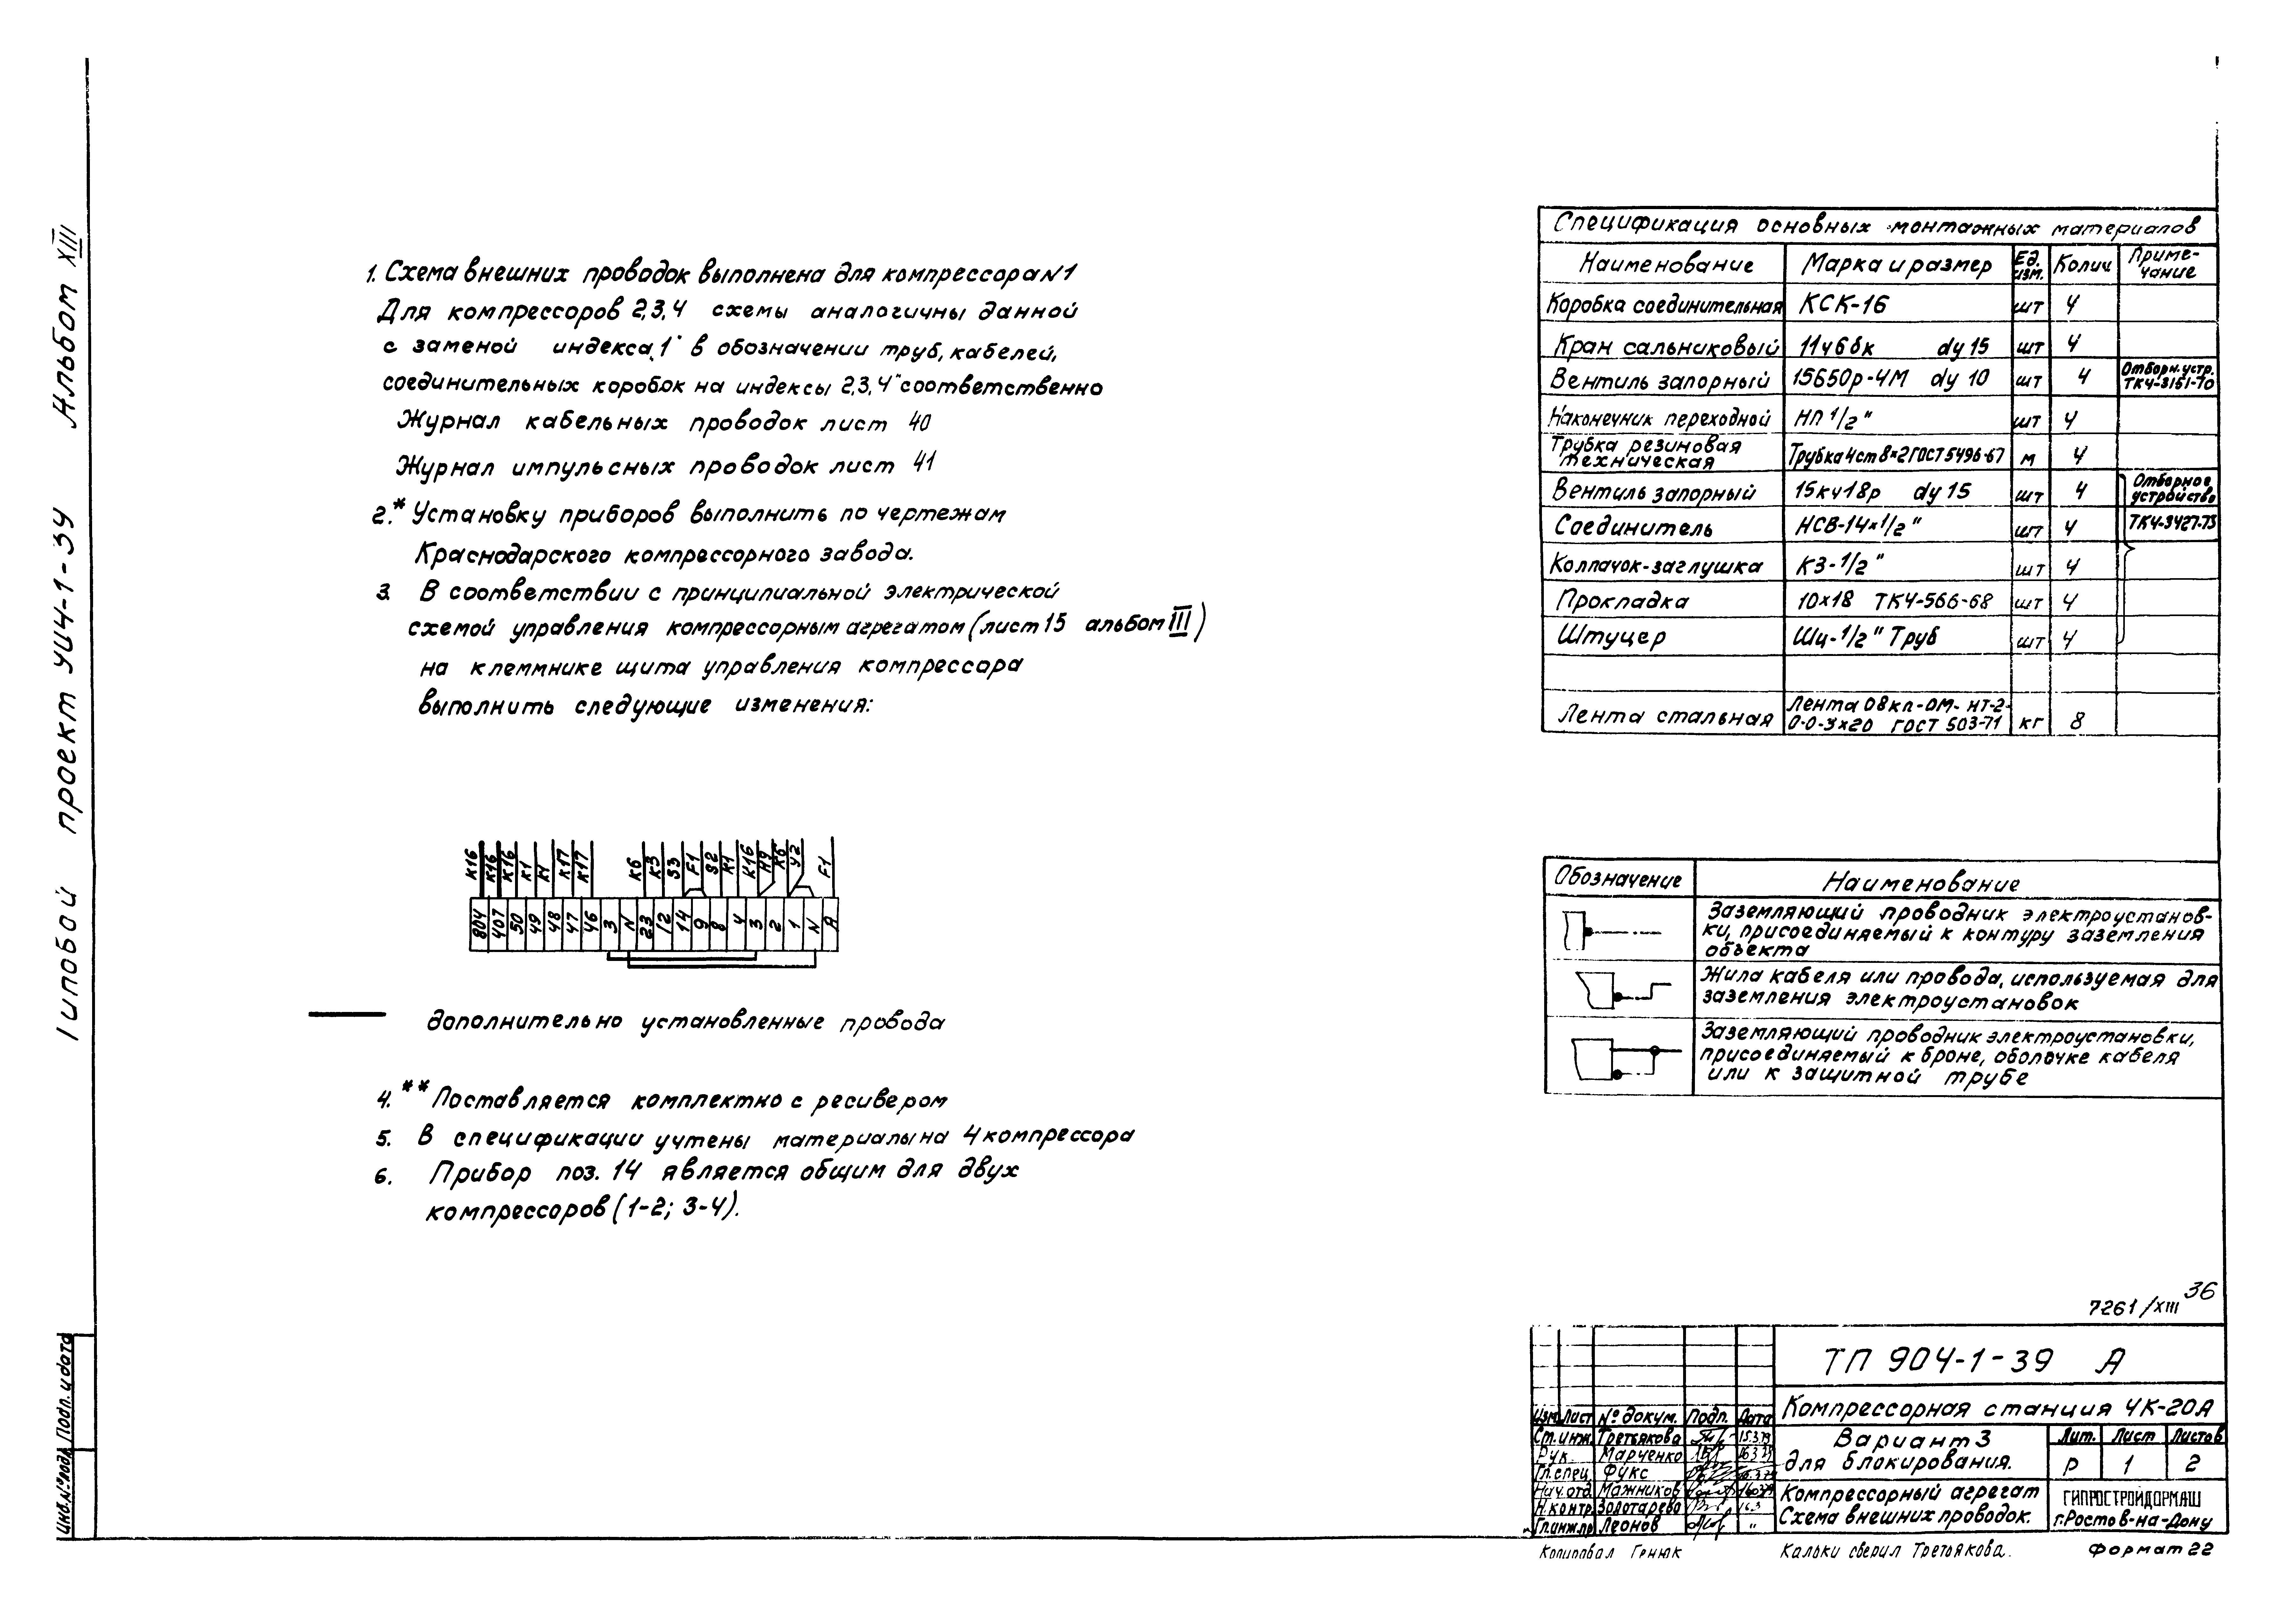 Альбом XIII
проект УИ4-1-34
1. Схема внешних проводок выполнена для компрессора N1
Для компрессоров 2,3,4 схемы аналогичны данной
с заменой индекса „1" в обозначении труб, кабелей,
соединительных коробок на индексы 2,3,4" соответственно
Журнал кабельных проводок лист 40
Журнал импульсных проводок лист 41
2.* Установку приборов выполнить по чертежам
Краснодарского компрессорного завода.
3. В соответствии с принципиальной электрической
схемой управления компрессорным агрегатом (лист 15 альбом III)
на клеммнике щита управления компрессора
выполнить следующие изменения:
К16 К16 К16 К1 К1 К17 К17 К6 К3 S3 F1 S2 К1 К16 Н9 К6 У2 F1
804 407 50 49 48 47 46 3 N 23 12 14 9 8 4 3 2 1 N A
дополнительно установленные провода
4. ** Поставляется комплектно с ресивером
5. В спецификации учтены материалы на 4 компрессора
6. Прибор поз. 14 является общим для двух
компрессоров (1-2; 3-4).
Спецификация основных монтажных материалов
Наименование Марка и размер Ед. изм. Колич Приме-чание
Коробка соединительная КСК-16 шт 4
Кран сальниковый 11ч6бк dy 15 шт 4
Вентиль запорный 15Б50р-4М dy 10 шт 4 Отборн. устр. ТК4-3151-70
Наконечник переходной НП 1/2" шт 4
Трубка резиновая техническая Трубка 4ст 8×2 ГОСТ 5496-67 м 4
Вентиль запорный 15кч18р dy 15 шт 4 Отборное устройство
Соединитель НСВ-14×1/2" шт 4 ТК4-3427-73
Колпачок-заглушка КЗ-1/2" шт 4
Прокладка 10×18 ТК4-566-68 шт 4
Штуцер Шц-1/2" Труб шт 4
Лента стальная Лента 08кп-ОМ-НТ-2-0-0-3×20 ГОСТ 503-71 кг 8
Обозначение Наименование
Заземляющий проводник электроустанов-
ки, присоединяемый к контуру заземления
объекта
Жила кабеля или провода, используемая для
заземления электроустановок
Заземляющий проводник электроустановки,
присоединяемый к броне, оболочке кабеля
или к защитной трубе
7261/XIII 36
ТП 904-1-39 А
Компрессорная станция 4К-20А
Вариант 3
для блокирования.
Лит. Лист Листов
Р 1 2
Компрессорный агрегат
Схема внешних проводок.
ГИПРОСТРОЙДОРМАШ
г. Ростов-на-Дону
Изм. Лист № докум. Подп. Дата
Ст. инж. Третьякова 15.3.79
Рук. Марченко
Гл. спец. Фукс
Нач. отд. Мажников
Н. контр. Золотарева 16.3
Гл. инж. пр Леонов "
Копировал Кальки сверил Третьякова. Формат 22
Инв. № подл. Подп. и дата